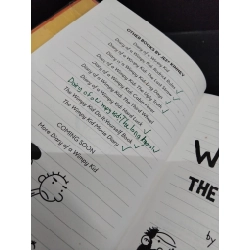 OTHER BOOKS BY JEFF KINNEY
Diary of a Wimpy Kid
Diary of a Wimpy Kid: Rodrick Rules
Diary of a Wimpy Kid: The Last Straw
Diary of a Wimpy Kid: Dog Days
Diary of a Wimpy Kid: The Ugly Truth
Diary of a Wimpy Kid: Cabin Fever
Diary of a Wimpy Kid: The Third Wheel
Diary of a Wimpy Kid: Hard Luck
Diary of a wimpy kid: The long haul
The Wimpy Kid Do-It-Yourself Book
The Wimpy Kid Movie Diary
COMING SOON
More Diary of a Wimpy Kid
W
THE
by